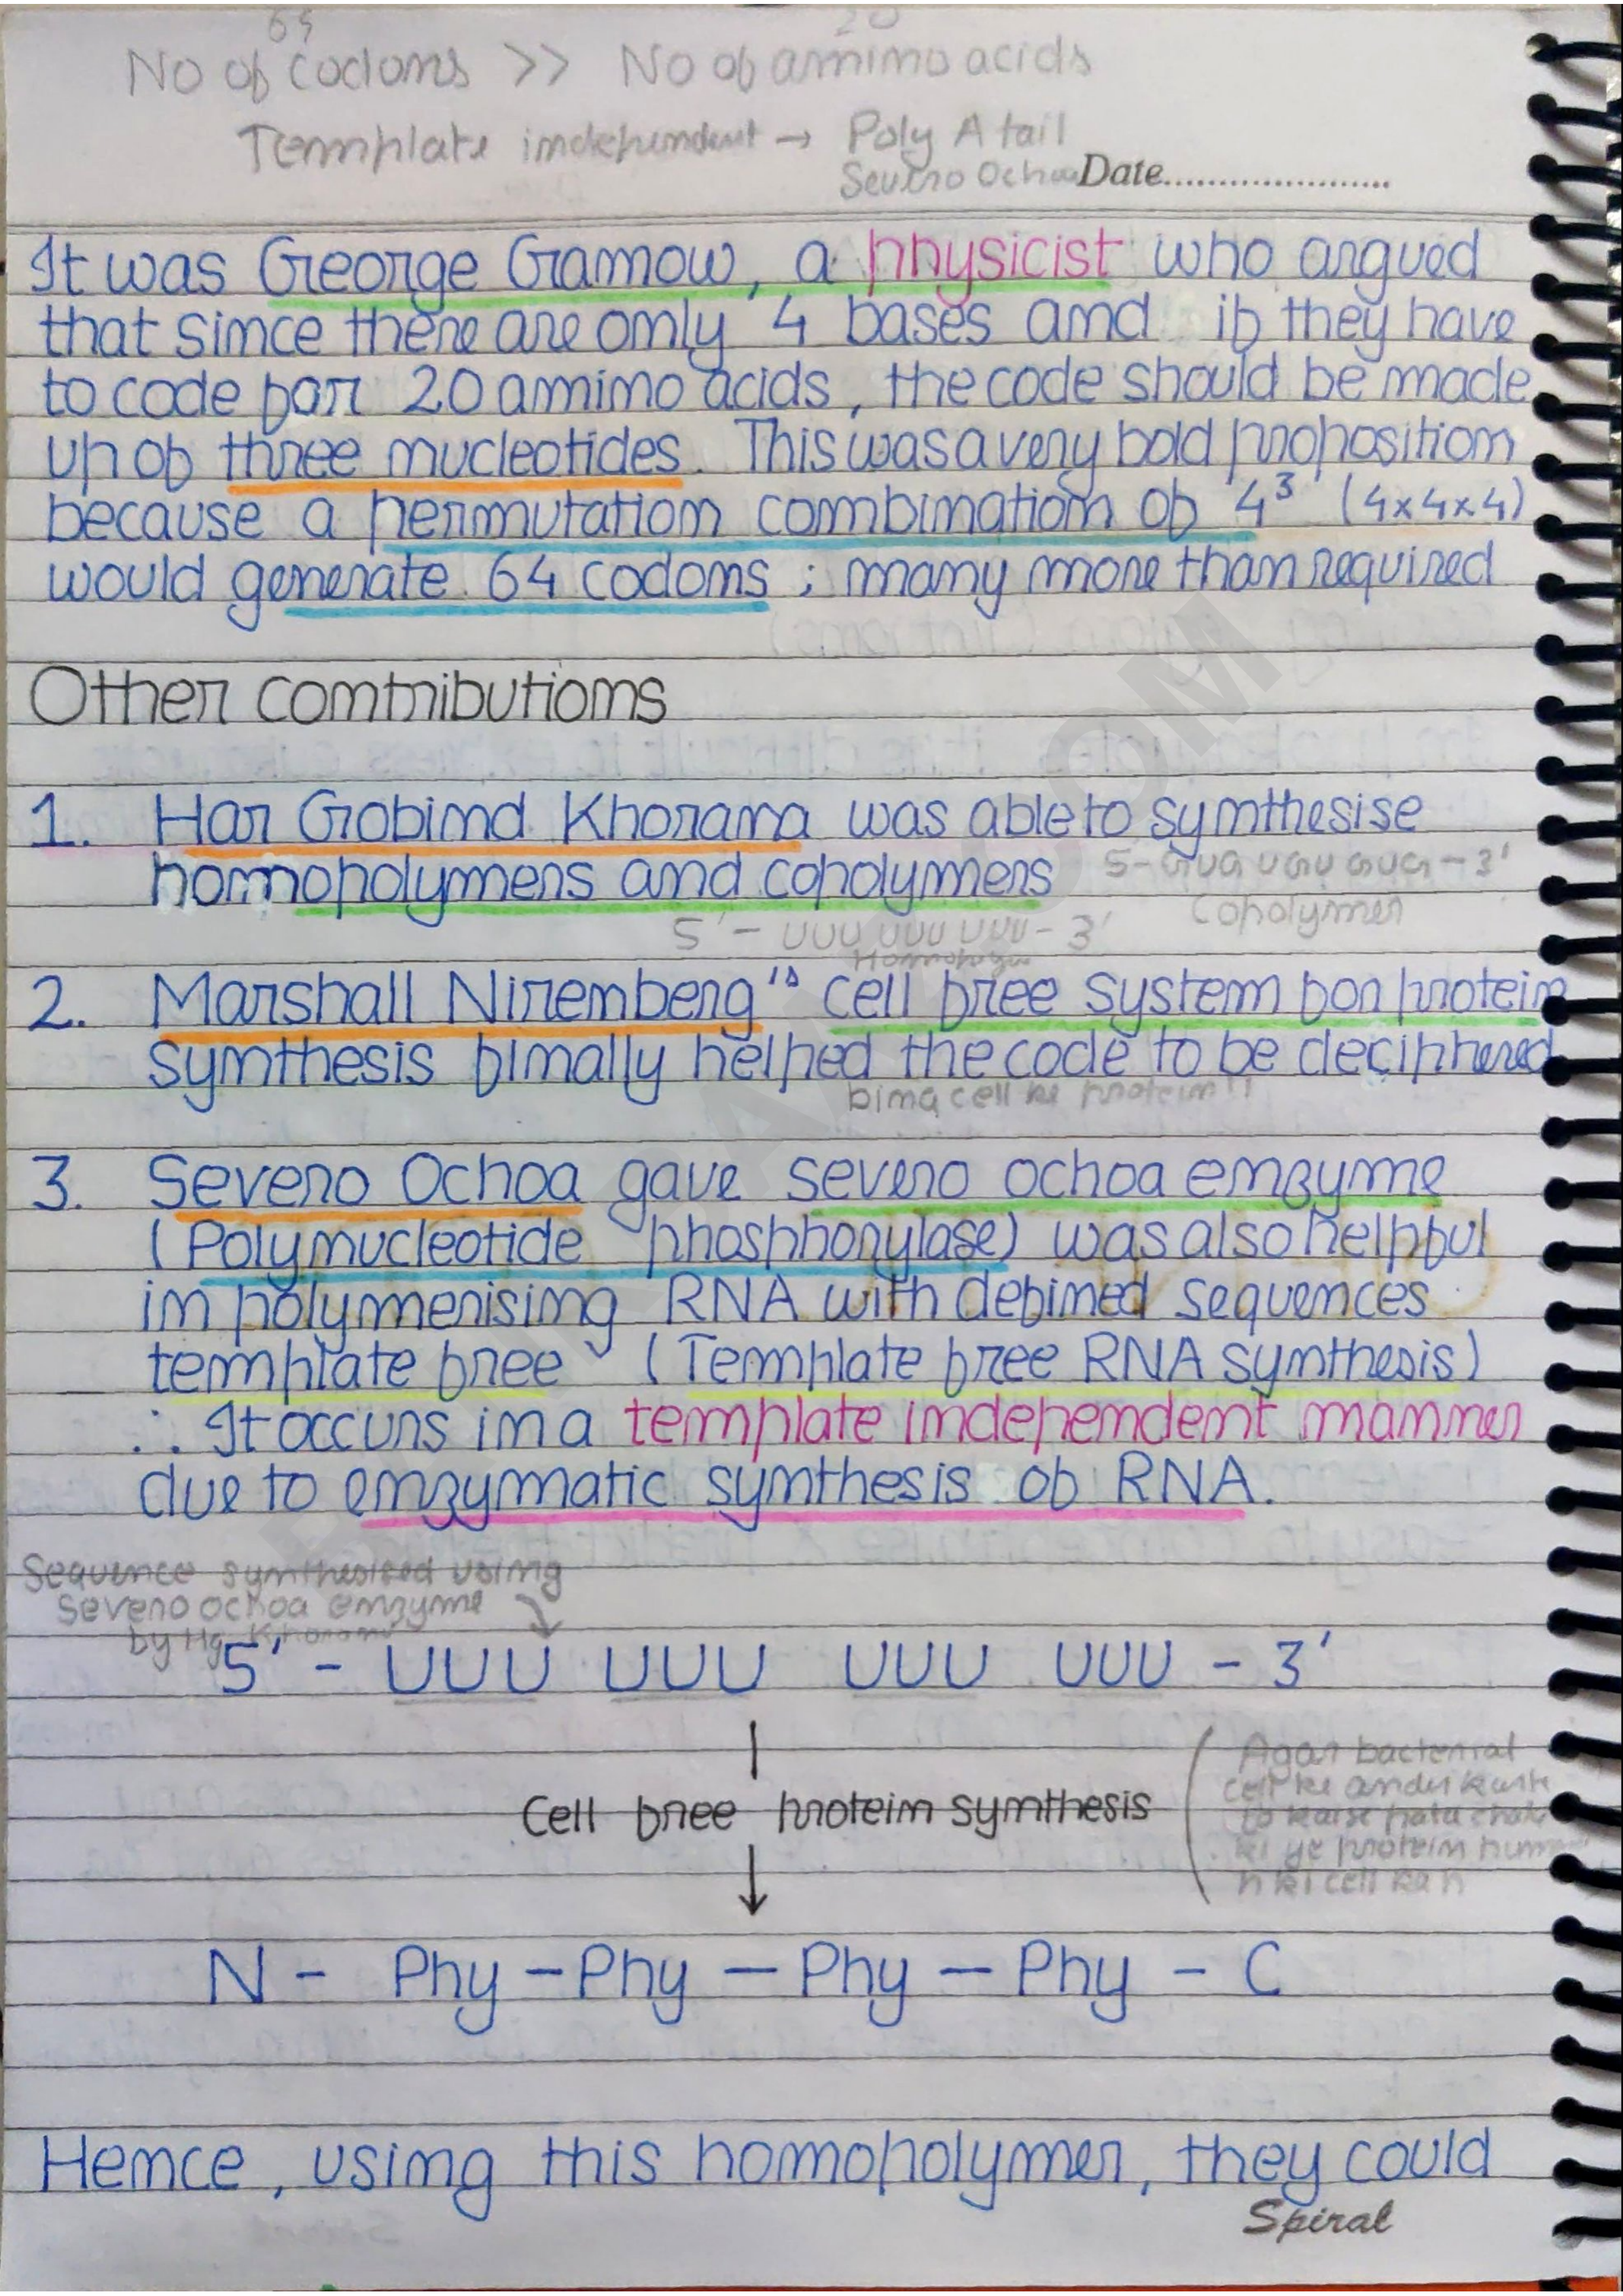 64 20
No of codons >> No of amino acids
Template independent → Poly A tail
Severo Ochoa Date......................
It was George Gamow, a physicist who argued
that since there are only 4 bases and if they have
to code for 20 amino acids, the code should be made
up of three nucleotides. This was a very bold proposition
because a permutation combination of '4³' (4x4x4)
would generate 64 codons ; many more than required
Other contributions
1. Har Gobind Khorana was able to synthesise
homopolymers and copolymers 5-GUG UGU GUG-3'
5'- UUU UUU UUU-3' Copolymer
2. Marshall Nirenberg's cell free system for protein
synthesis finally helped the code to be deciphered
bina cell ke protein!!
3. Severo Ochoa gave severo ochoa enzyme
(Polynucleotide phosphorylase) was also helpful
in polymerising RNA with defined sequences
template free (Template free RNA synthesis)
∴ It occurs in a template independent manner
due to enzymatic synthesis of RNA.
Sequence synthesised using
Severo ochoa enzyme
by Hg Khorana
5' - UUU UUU UUU UUU - 3'
Cell free protein synthesis
Agar bacterial
cell ke andar karte
to kaise pata
ki ye protein
ki cell ka h
N - Phy - Phy - Phy - Phy - C
Hence, using this homopolymer, they could
Spiral